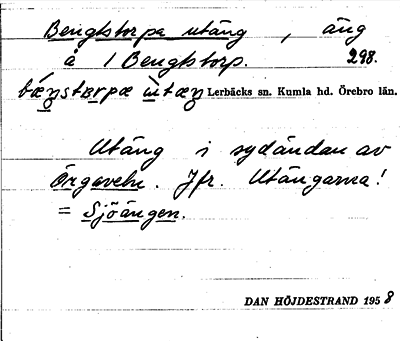 Bengtstorpa utäng, äng
å 1 Bengtstorp. 298.
Lerbäcks sn. Kumla hd. Örebro län.
Utäng i sydändan av
Örgaveln. Jfr. Utängarna!
= Sjöängen.
DAN HÖJDESTRAND 1958